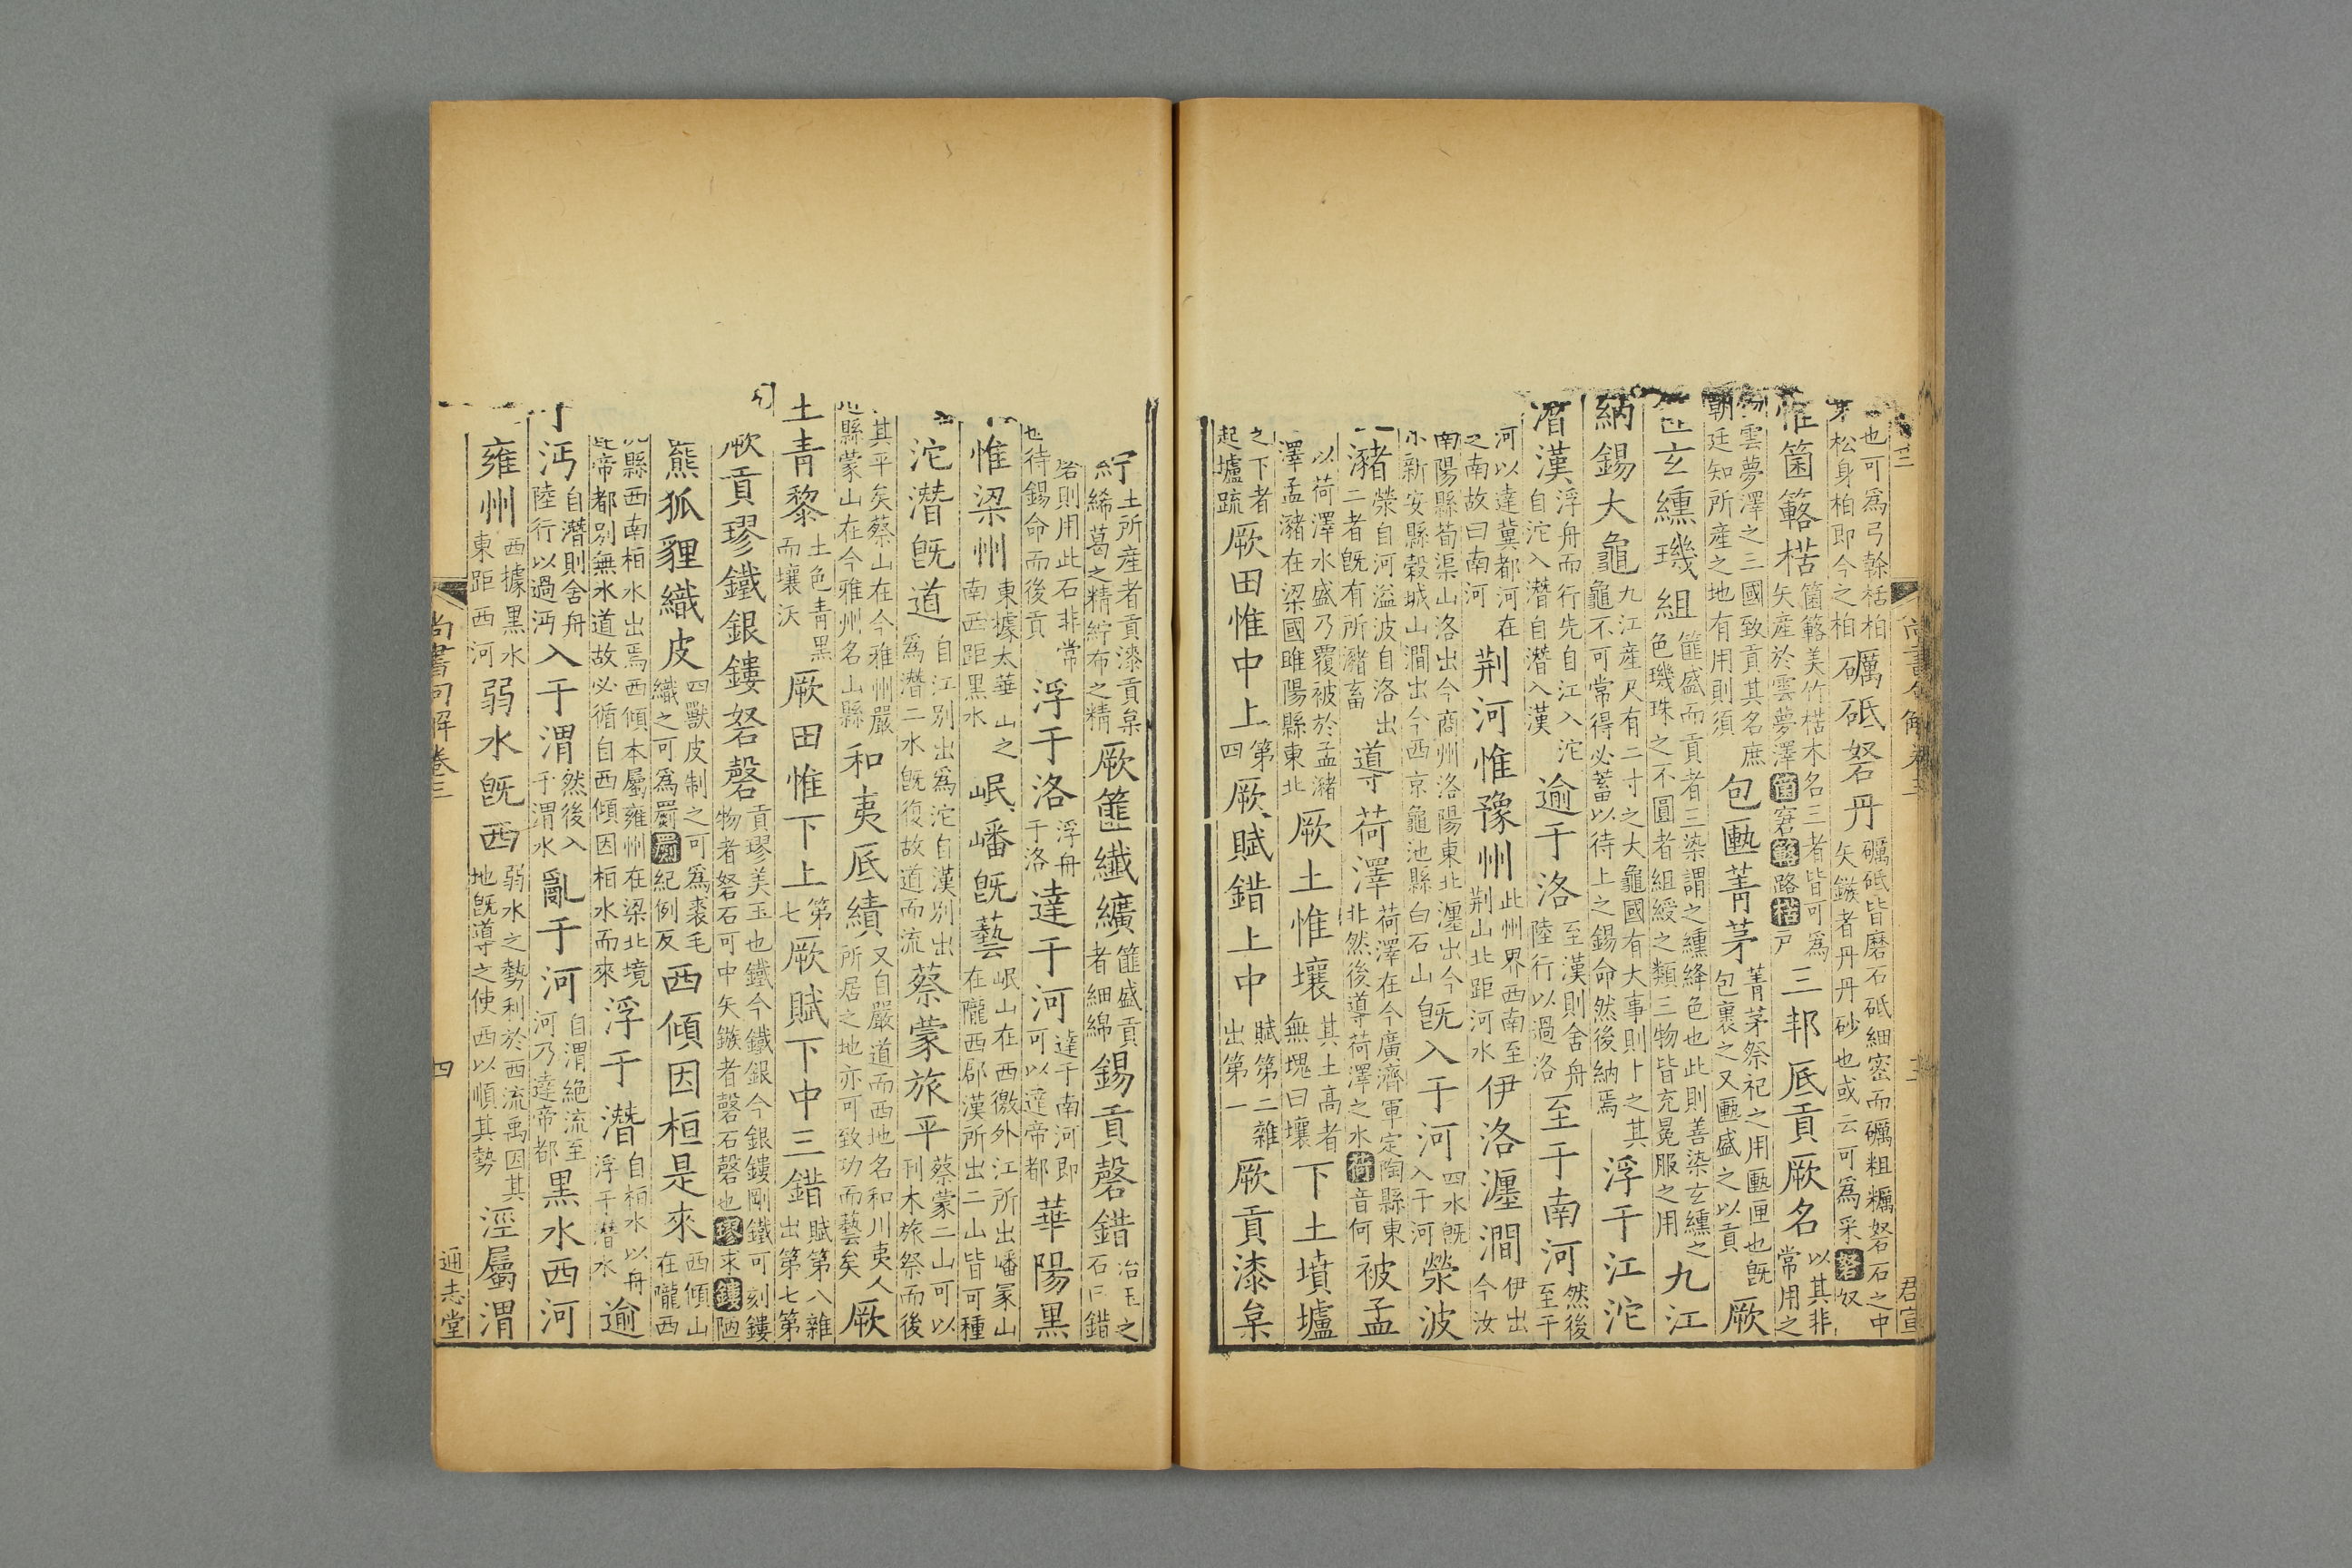 也可爲弓榦栝柏松身柏即今之柏礪砥砮丹礪砥皆磨石砥細密而礪粗糲砮石之中矢鏃者丹丹砂也或云可爲采砮奴
惟箘簵楛箘簵美竹楛木名三者皆可爲矢產於雲夢澤箘窘簵路楛戸三邦厎貢厥名以其非常用之
物雲夢澤之三國致貢其名庶朝廷知所產之地有用則須包匭菁茅菁茅祭祀之用匭匣也旣包裹之又匭盛之以貢厥
玄纁璣組篚盛而貢者三染謂之纁絳色也此則善染玄纁之色璣珠之不圓者組綬之類三物皆充冕服之用九江
納錫大龜九江產尺有二寸之大龜國有大事則卜之其龜不可常得必蓄以待上之錫命然後納焉浮于江沱
潛漢浮舟而行先自江入沱自沱入潛自潛入漢逾于洛至漢則舍舟陸行以過洛至于南河然後至于
河以達冀都河在之南故曰南河荆河惟豫州此州界西南至荆山北距河水伊洛瀍澗伊出今汝
南陽縣荀渠山洛出今商州洛陽東北瀍出今新安縣穀城山澗出今西京龜池縣白石山旣入于河四水旣入于河滎波
瀦滎自河溢波自洛出二者旣有所瀦畜導荷澤荷澤在今廣濟軍定陶縣東北然後導荷澤之水荷音何被孟
以荷澤水盛乃覆被於孟瀦澤孟瀦在梁國睢陽縣東北厥土惟壤其土高者無塊曰壤下土墳壚
之下者起壚疏厥田惟中上第四厥賦錯上中賦第二雜出第一厥貢漆枲
君宣
紵土所產者貢漆貢枲絺葛之精紵布之精厥篚纖纊篚盛貢者細綿錫貢磬錯治玉之石曰錯
砮則用此石非常也待錫命而後貢浮于洛浮舟于洛達于河達于南河即可以達帝都華陽黑
惟梁州東據太華山之南西距黑水岷嶓旣藝岷山在西徼外江所出嶓冢山在隴西郡漢所出二山皆可種
沱潛旣道自江別出爲沱自漢別出爲潛二水旣復故道而流蔡蒙旅平蔡蒙二山可以刊木旅祭而後
其平矣蔡山在今雅州嚴縣蒙山在今雅州名山縣和夷厎績又自嚴道而西地名和川夷人所居之地亦可致功而藝矣厥
土青黎土色青黑而壤沃厥田惟下上第七厥賦下中三錯賦第八雜出第七第
厥貢璆鐵銀鏤砮磬貢璆美玉也鐵今鐵銀今銀鏤剛鐵可刻鏤物者砮石可中矢鏃者磬石磬也璆求鏤陋
熊狐貍織皮四獸皮制之可爲裘毛織之可爲罽罽紀例反西傾因桓是來西傾山在隴西
縣西南桓水出焉西傾本屬雍州在梁北境距帝都別無水道故必循自西傾因桓水而來浮于潛自桓水以舟浮于潛水逾
于沔自潛則舍舟陸行以過沔入于渭然後入于渭水亂于河自渭絕流至河乃達帝都黑水西河
雍州西據黑水東距西河弱水旣西弱水之勢利於西流禹因其地旣導之使西以順其勢涇屬渭
尚書句解卷三
四
通志堂